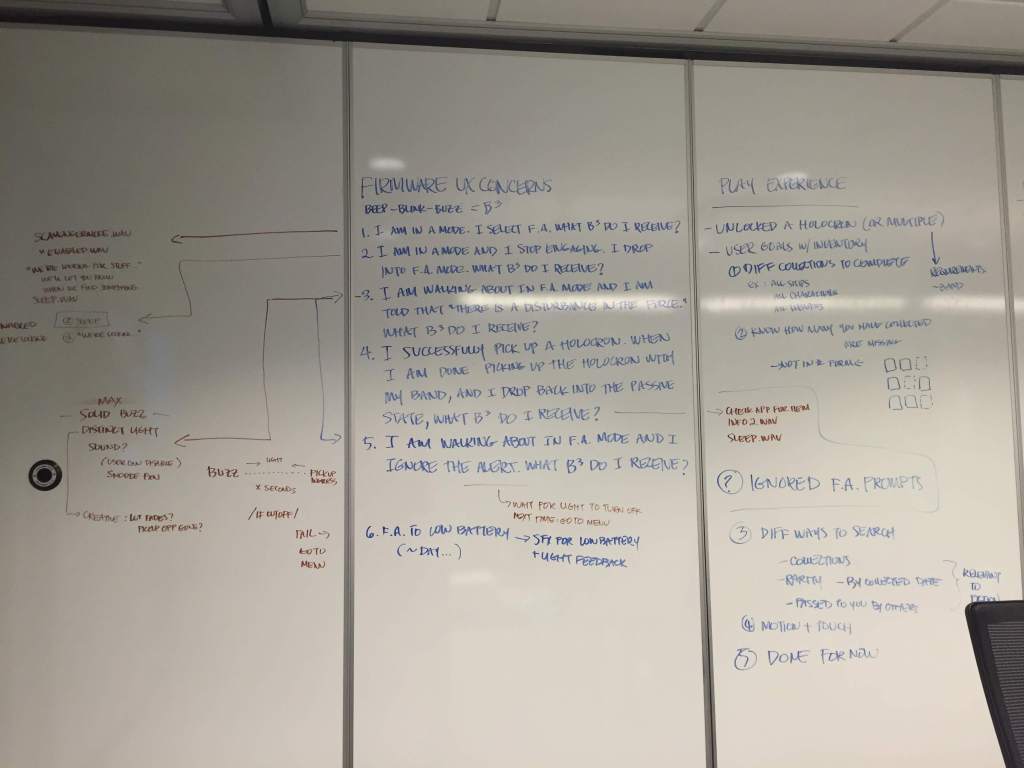 SCAVENGERMODE.WAV
ENABLED.WAV
"WE'RE LOOKING FOR STUFF.
WE'LL LET YOU KNOW
WHEN WE FIND SOMETHING
SLEEP.WAV
"WE'RE LOOKING"
MAX
SOLID BUZZ
DISTINCT LIGHT
SOUND?
(USER CAN DISABLE)
SNOOZE FXN
CREATIVE: LGT FADES?
PICKUP OPP GONE?
LIGHT
BUZZ
PICKUP
X SECONDS
/IF CUTOFF/
FAIL →
GO TO
MENU
FIRMWARE UX CONCERNS
BEEP-BLINK-BUZZ = B³
1. I AM IN A MODE. I SELECT F.A. WHAT B³ DO I RECEIVE?
2. I AM IN A MODE AND I STOP ENGAGING. I DROP
INTO F.A. MODE. WHAT B³ DO I RECEIVE?
3. I AM WALKING ABOUT IN F.A. MODE AND I AM
TOLD THAT "THERE IS A DISTURBANCE IN THE FORCE."
WHAT B³ DO I RECEIVE?
4. I SUCCESSFULLY PICK UP A HOLOCRON. WHEN
I AM DONE PICKING UP THE HOLOCRON WITH
MY BAND, AND I DROP BACK INTO THE PASSIVE
STATE, WHAT B³ DO I RECEIVE?
5. I AM WALKING ABOUT IN F.A. MODE AND I
IGNORE THE ALERT. WHAT B³ DO I RECEIVE?
WAIT FOR LIGHT TO TURN OFF
NEXT TIME: GO TO MENU
6. F.A. TO LOW BATTERY → SFX FOR LOW BATTERY
(~DAY...) + LIGHT FEEDBACK
PLAY EXPERIENCE
- UNLOCKED A HOLOCRON (OR MULTIPLE)
- USER GOALS W/ INVENTORY
① DIFF COLLECTIONS TO COMPLETE
EX: ALL SHIPS
ALL CHARACTERS
REQUIREMENTS
- BAND
② KNOW HOW MANY YOU HAVE COLLECTED
ARE MISSING
- NOT IN # FORM
→ CHECK APP FOR ITEM
INFO 2.WAV
SLEEP.WAV
? IGNORED F.A. PROMPTS
③ DIFF WAYS TO SEARCH
- COLLECTIONS
- RARITY - BY COLLECTED DATE
- PASSED TO YOU BY OTHERS
RELEVANT
TO
④ MOTION + TOUCH
⑤ DONE FOR NOW